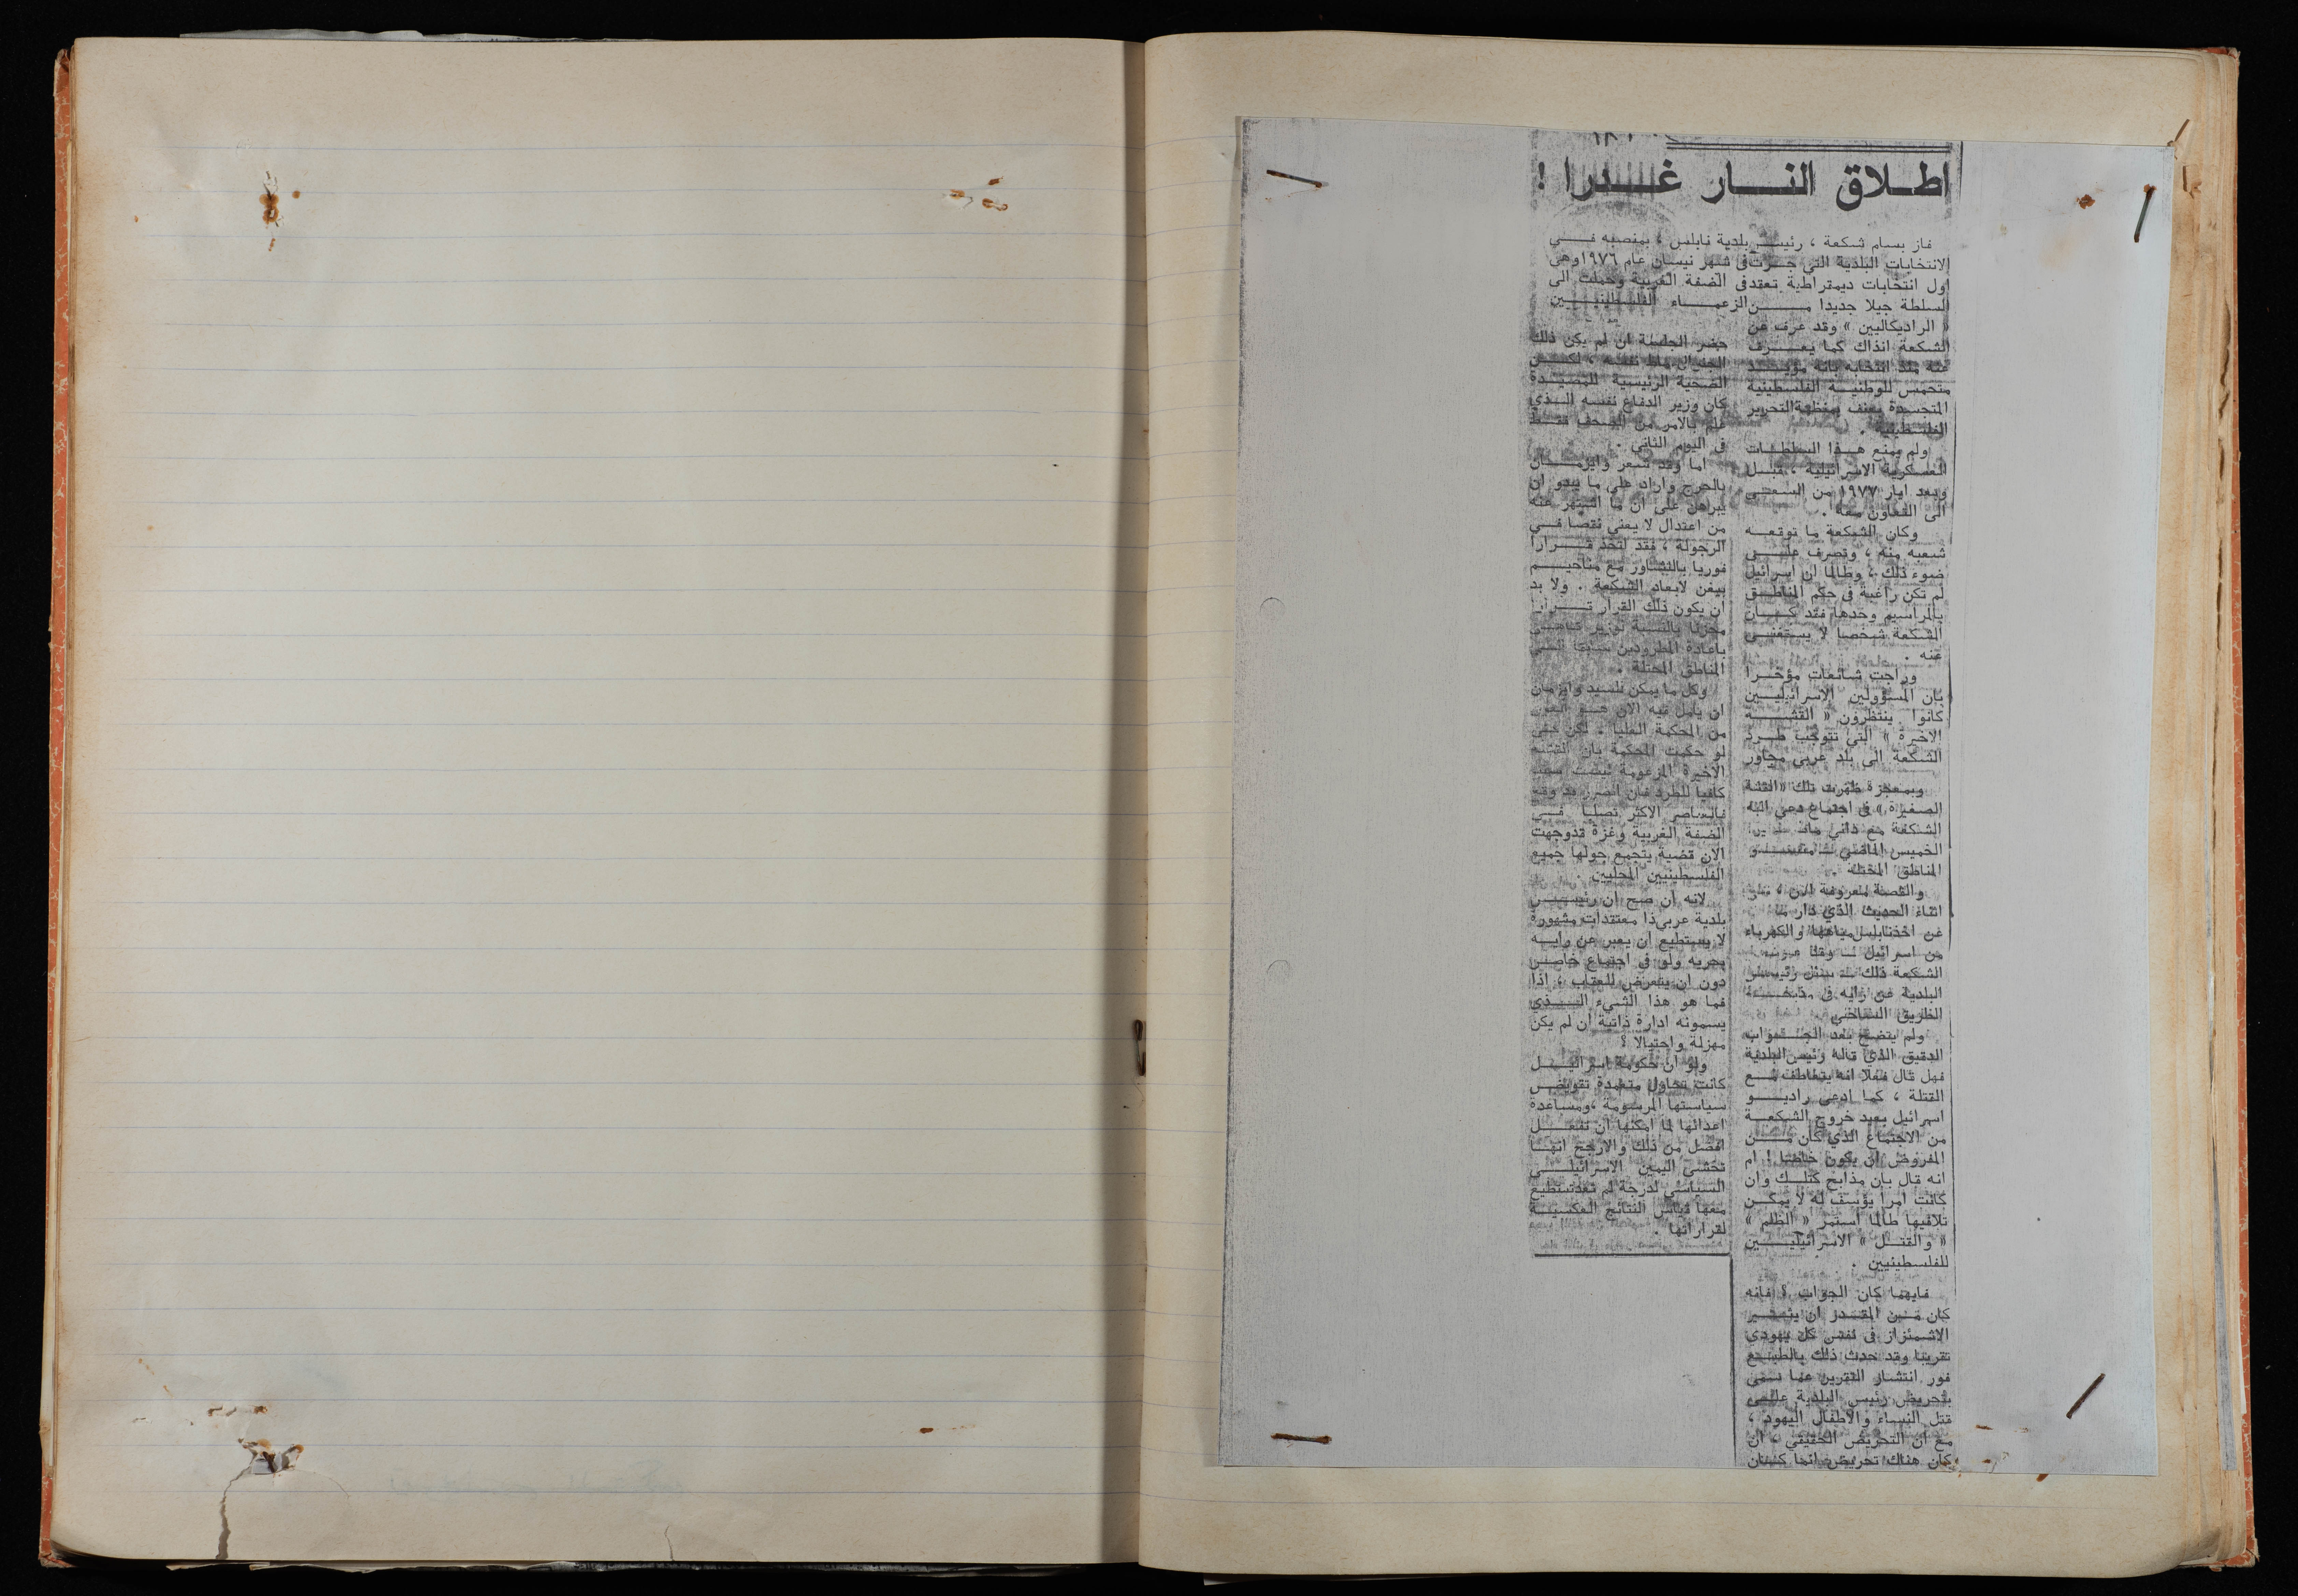 اطــلاق النـــار غـــدرا !
فاز بسام شكعة ، رئيس بلدية نابلس ، بمنصبه فــي
الانتخابات البلدية التي جــرت في شهر نيسان عام ١٩٧٦ وهي
اول انتخابات ديمقراطية تعقد في الضفة الغربية وحملت الى
السلطة جيلا جديدا مـــن الزعمــــاء الفلسطينيـــين
« الراديكاليين » وقد عرف عن
الشكعة انذاك كما يعـــرف
عنه منذ انتخابه بانه مؤيـــد
متحمس للوطنيــة الفلسطينية
المتجسدة بعنف بمنظمة التحرير
الفلسطينية .
ولم يمنع هــذا السلطــات
العسكرية الاسرائيلية ، قبــل
وبعد ايار ١٩٧٧ من السعــي
الى التعاون معه .
وكان الشكعة ما توقعــه
شعبه منه ، وتصرف علـــى
ضوء ذلك ، وطالما ان اسرائيل
لم تكن راغبة في حكم المناطــق
بالمراسيم وحدها فقد كـــان
الشكعة شخصا لا يستغنــى
عنه .
وراجت شائعات مؤخـرا
بان المسؤولين الاسرائيليــين
كانوا ينتظرون « القشـــة
الاخيرة » التي تتوجب طــرد
الشكعة الى بلد عربي مجاور
وبمعجزة ظهرت تلك «القشة
الصغيرة» في اجتماع دعي اليه
الشكعة مع داني
الخميس الماضي
المناطق المحتلة .
والقصة معروفة الان ،
اثناء الحديث الذي دار
عن اخذ نابلس مياهها والكهرباء
من اسرائيل ــ وقد
الشكعة ذلك ــ سئل رئيــس
البلدية عن رايه في مذبحــة
الطريق الساحلي
ولم يتضح بعد الجــواب
الدقيق الذي قاله رئيس البلدية
فهل قال فعلا انه يتعاطف مــع
القتلة ، كما ادعى راديـــو
اسرائيل بعيد خروج الشكعــة
من الاجتماع الذي كان مـــن
المفروض ان يكون خاصا ! ام
انه قال بان مذابح كتلــك وان
كانت امرا يؤسف له لا يمكــن
تلافيها طالما استمر « الظلم »
« والقتــل » الاسرائيليـــين
للفلسطينيين .
فايهما كان الجواب ؟ فانه
كان مــن المقــدر ان يثــير
الاشمئزاز في نفس كل يهودي
تقريبا وقد حدث ذلك بالطبــع
فور انتشار التقرير عما سمي
بتحريض رئيس البلدية علــى
قتل النساء والاطفال اليهود ،
مع ان التحريض الحقيقي ، ان
كان هناك تحريض انما كــان
حضر الجلسة ان لم يكن ذلك
نفسه ، لكـــن
الضحية الرئيسية للمصيــدة
كان وزير الدفاع نفسه الــذي
علم بالامر من الصحف فقــط
في اليوم الثاني .
اما وقد شعر وايزمـــان
بالحرج واراد على ما يبدو ان
يبرهن على ان ما اشتهر عنه
من اعتدال لا يعني نقصا فــي
الرجولة ، فقد اتخذ قـــرارا
فوريا بالتشاور مع مناحيــم
بيغن لابعاد الشكعة . ولا بد
ان يكون ذلك القرار قـــرارا
محزنا بالنسبة لوزير
باعادة المطرودين سابقا الــى
المناطق المحتلة .
وكل ما يمكن للسيد وايزمان
ان يامل فيه الان هــو العون
من المحكمة العليا . لكن حتى
لو حكمت المحكمة بان القشة
الاخيرة المزعومة ليست سببا
كافيا للطرد فان الضرر قد وقع
فالعناصر الاكثر تصلبا فــي
الضفة الغربية وغزة قد وجهت
الان قضية يتجمع حولها جميع
الفلسطينيين المحليين .
لانه ان صح ان رئيــس
بلدية عربي ذا معتقدات مشهورة
لا يستطيع ان يعبر عن رايــه
بحرية ولو في اجتماع خاص
دون ان يتعرض للعقاب ، اذا
فما هو هذا الشيء الــذي
يسمونه ادارة ذاتية ان لم يكن
مهزلة واحتيالا ؟
ولو ان حكومة اسرائيــل
كانت تحاول متعمدة تقويض
سياستها المرسومة ، ومساعدة
اعدائها لما امكنها ان تفعــل
افضل من ذلك والارجح انهــا
تخشى اليمين الاسرائيلـــي
السياسي لدرجة لم تعد تستطيع
معها قياس النتائج العكسيــة
لقراراتها .